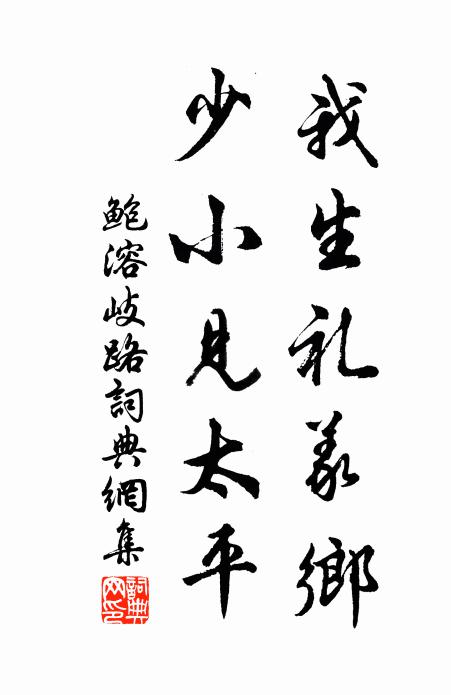 我生礼义鄉
少小見太平
鲍溶歧路詞典網集
詞典網印